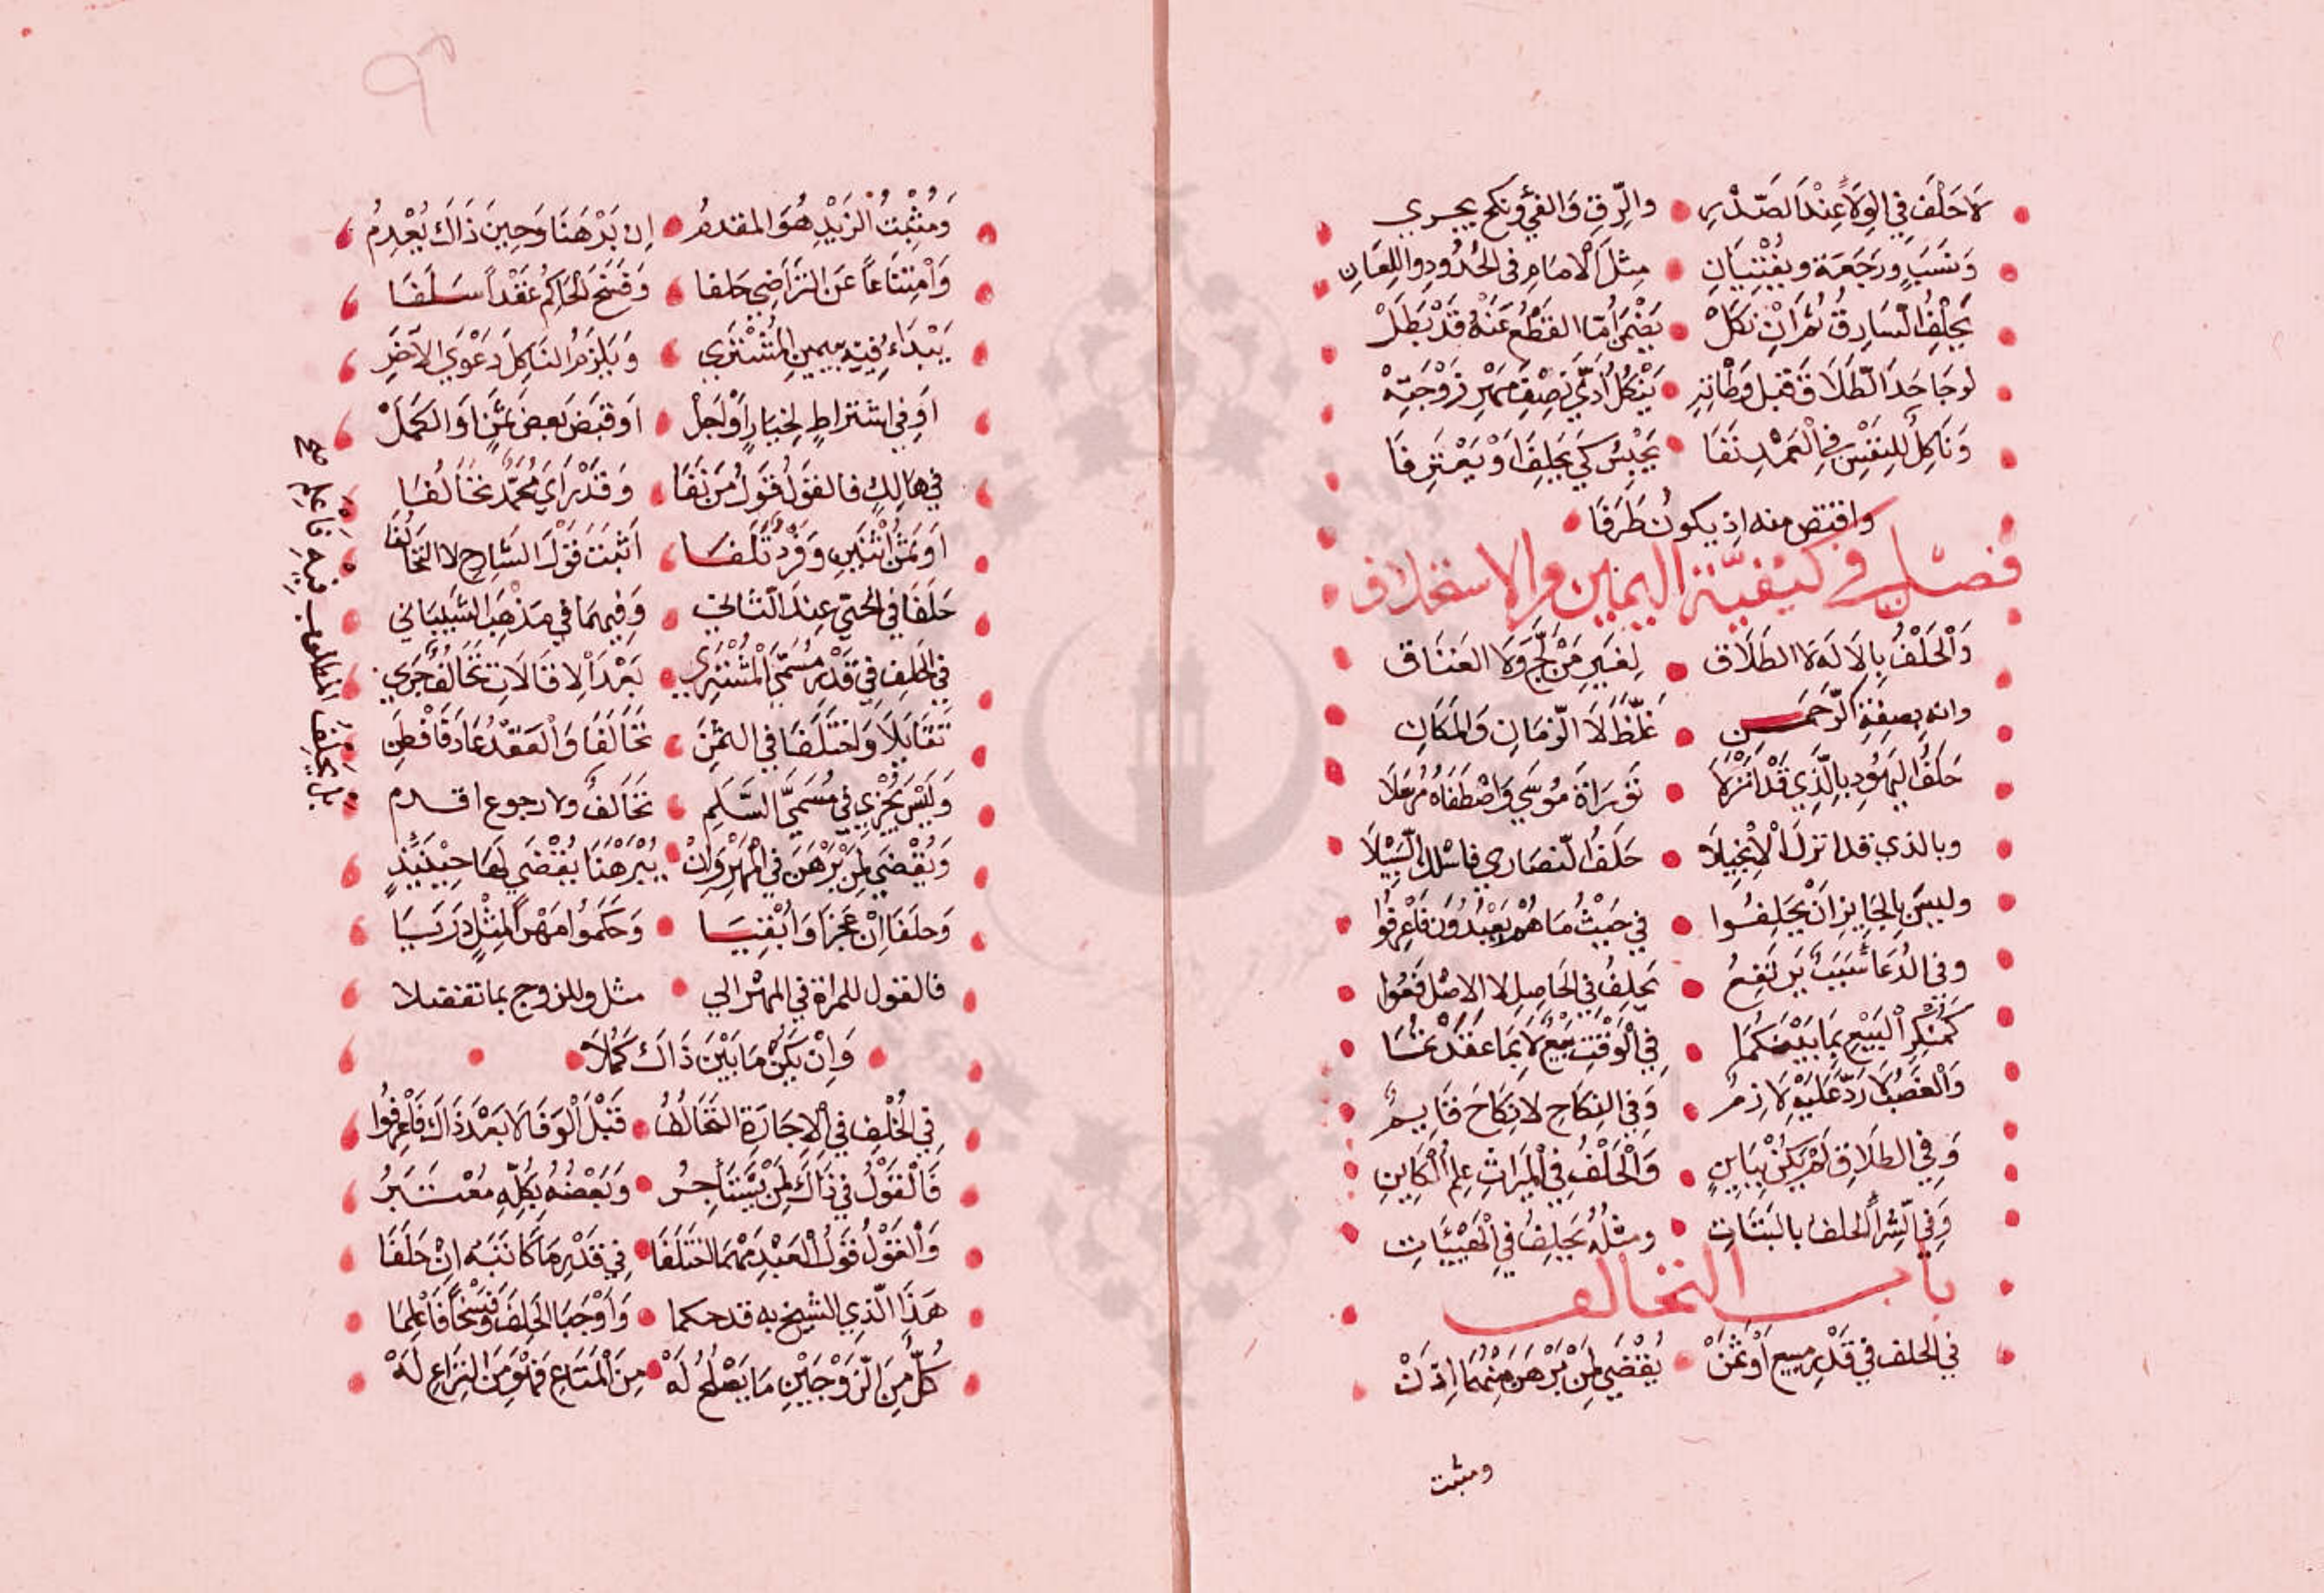 لَا حَلْفَ فِي الوِلَاءِ عِنْدَ الصَّدْرِ • والرِّقِ وَالفَيْ ونكح يجري
وَنَسَبٍ ورَجْعَة ويُفْتِيَانِ • مِثْلَ الامَامِ في الحُدُودِ واللِعَانِ
يَحْلِفُ السَارِقُ ثُمَ اِنْ نَكَلْ • يَضْمَنُ امّا القَطْعُ عَنْهُ قَدْ بَطَلْ
لو جَاحَدَ الطَلَاقَ قبل وَطْاتِهِ • يَنْكُلُ ادَّي نِصْفَ مَهْرِ زَوْجَتِهْ
وَنَاكِلٌ لِلنَفْسِ فِي الْعَمْدِ نَفَا • يُحْبَسُ كَي يَحلِفَ اَوْ يَعْتَرِفَا
واقتص منه اذ يكونُ طَرَفَا
فصل في كيفيّة اليمين والاستحلاف
وَالْحَلْفُ بِالالَهِ لَا الطَلَاق • لِغَيرِ مَنْ لَجَّ وَلَا العَتَاق
وانه بِصِفَةِ الرَّحمَن • غَلِّظْ لَا الزَمَانِ وَالمكَانِ
حَلفُ اليَهُودِ بِالَّذِي قَدْ اَنْزَلَا • تَوْرَاةَ مُوسَي وَاصْطَفَاهُ مُرْسَلَا
وبالذي قد انزلَ الاِنْجِيلَا • حَلفُ النصَارى فاسْلك السَّبيْلَا
وليسَ بِالجَايِزِ اَنْ يَحْلِفُوا • في حَيْثُ مَا هُمْ يَعْبُدُونَ فَاعْرِفُوا
وفي ادُعَا سَبَبٍ يَرتَفِعُ • يَحلِفُ في الحَاصِلِ لا الاصْلِ فَعُوا
كَمُنْكِرِ الْبَيْعِ بِمَا بَيْنَكُمَا • في الْوَقْتِ بَيْعٌ لَا بِمَا عَقَدْتُمَا
وَالْغَصْبُ لَا رَدَّ عَلَيْهِ لَازِمُ • وَفي النِكَاحِ لا نِكَاحَ قَايِمُ
وَفِي الطَلَاقِ لَمْ يَكُنْ بِبَايِنٍ • وَالْحَلْفُ فِي الْمِيرَاثِ عِلمُ الْكَايِنِ
وَفي الشِّرَا الحلف بالبَتَاتِ • ومثلُه يَحلِفُ في الْهِبَاتِ
باب التحالف
في الحلف في قَدْرِ مبيع اَوْ ثَمَنْ • يُقْضَي لِمَنْ بَرْهَنَ مِنْهُمَا اِذَنْ
ومثبت
وَمُثْبِتُ الْزَيْدِ هُوَ المقدمُ • اِن بَرْهَنَا وَحِينَ ذَاكَ يُعْدِمُ
وَامْتِنَاعاً عَنِ التَرَاضِي حَلفا • وَفَسْخ الْحَاكِمُ عَقْداً سَلَفَا
يَبْدَاءُ فِيهِ بِيَمينِ الْمُشْتَرِي • وَيلزمُ النَاكِلَ دَعْوَي الآخَرِ
اَو فِي اشتراطٍ لِخيَارٍ اَوْ اَجَلْ • اَو قبَض بَعضِ ثَمَنٍ اَوِ الكمَلْ
في هَالِكٍ فالقوَلُ قَوَلُ مَنْ نَفَا • وَقَدْ رَاَي مُحَمَّدٌ تَخَالُفَا
اَو بَثَمَنْ اثْنَيْنِ وَفَرْدٌ تَلَفَا • اَثْبَتَ قَوْلَ الشَارِحِ لا التَحَالُفَا
حَلَفَا في الحَيِّ عِندَ الثَاني • وَفِيهِمَا في مَذْهَبِ الشَيْبَاني
في الحَلفِ في قَدْرِ مُسَمَّي الْمُشْتَرِي • بَعْدَ الاِقَالَاتِ تَخَالُفٌ جَرَي
تَقَايَلَا وَاخْتَلَفَا في الثمَن • تَخَالَفَا وَالْعَقْدُ عَادَ فَافْطِن
وَلَيْسَ يُجْزِي فِي مُسَمَّي السَّلَمِ • تَخَالُفٌ ولا رجوع اقدم
وَيُقْضَي لِمَنْ بَرْهَنَ في الْمَهْرِ وَاِنْ • يُبَرْهَنَا يُقْضَي لَهَا حِيْنَيِذٍ
وَحَلَفَا اِنْ عَجَزَا وَاُبْقِيَا • وَحَكَمُوا مَهْراً لِمِثْلٍ دَرَيَا
فالقول للمراة في المهْر الي • مثل وللزوج بما تفضلا
• وَاِنْ يَكُنْ مَا بَيْنَ ذَاكَ كَمُلَا •
فِي الْخُلْفِ في الاِجَارَةِ التَحَالُفُ • قَبْلَ الْوَفَا لَا بَعْدَ ذَاكَ فَاعْرِفُوا
فَالْقَوْلُ في ذَاكَ لِمَنْ يَسْتَاجِرُ • وَبَعْضُهُ بِكُلِّهِ مُعْتَبَرُ
وَالْقَوْلُ قَوْلُ العَبْدِ مَهْمَا اخْتَلَفَا • فِي قَدْرِ مَا كَاتَبَه اِنْ حَلَفَا
هَذَا الَّذِي الشيخ به قد حكما • وَاَوْجَبَا الحَلِفَ وَفَسْخاً فَاعْلَمَا
كُلٌّ مِنَ الزَّوْجَيْنِ مَا يَصْلُحُ لَهْ • مِنَ الْمَتَاعِ فَهْوَ مَن النِزَاعِ لَهْ